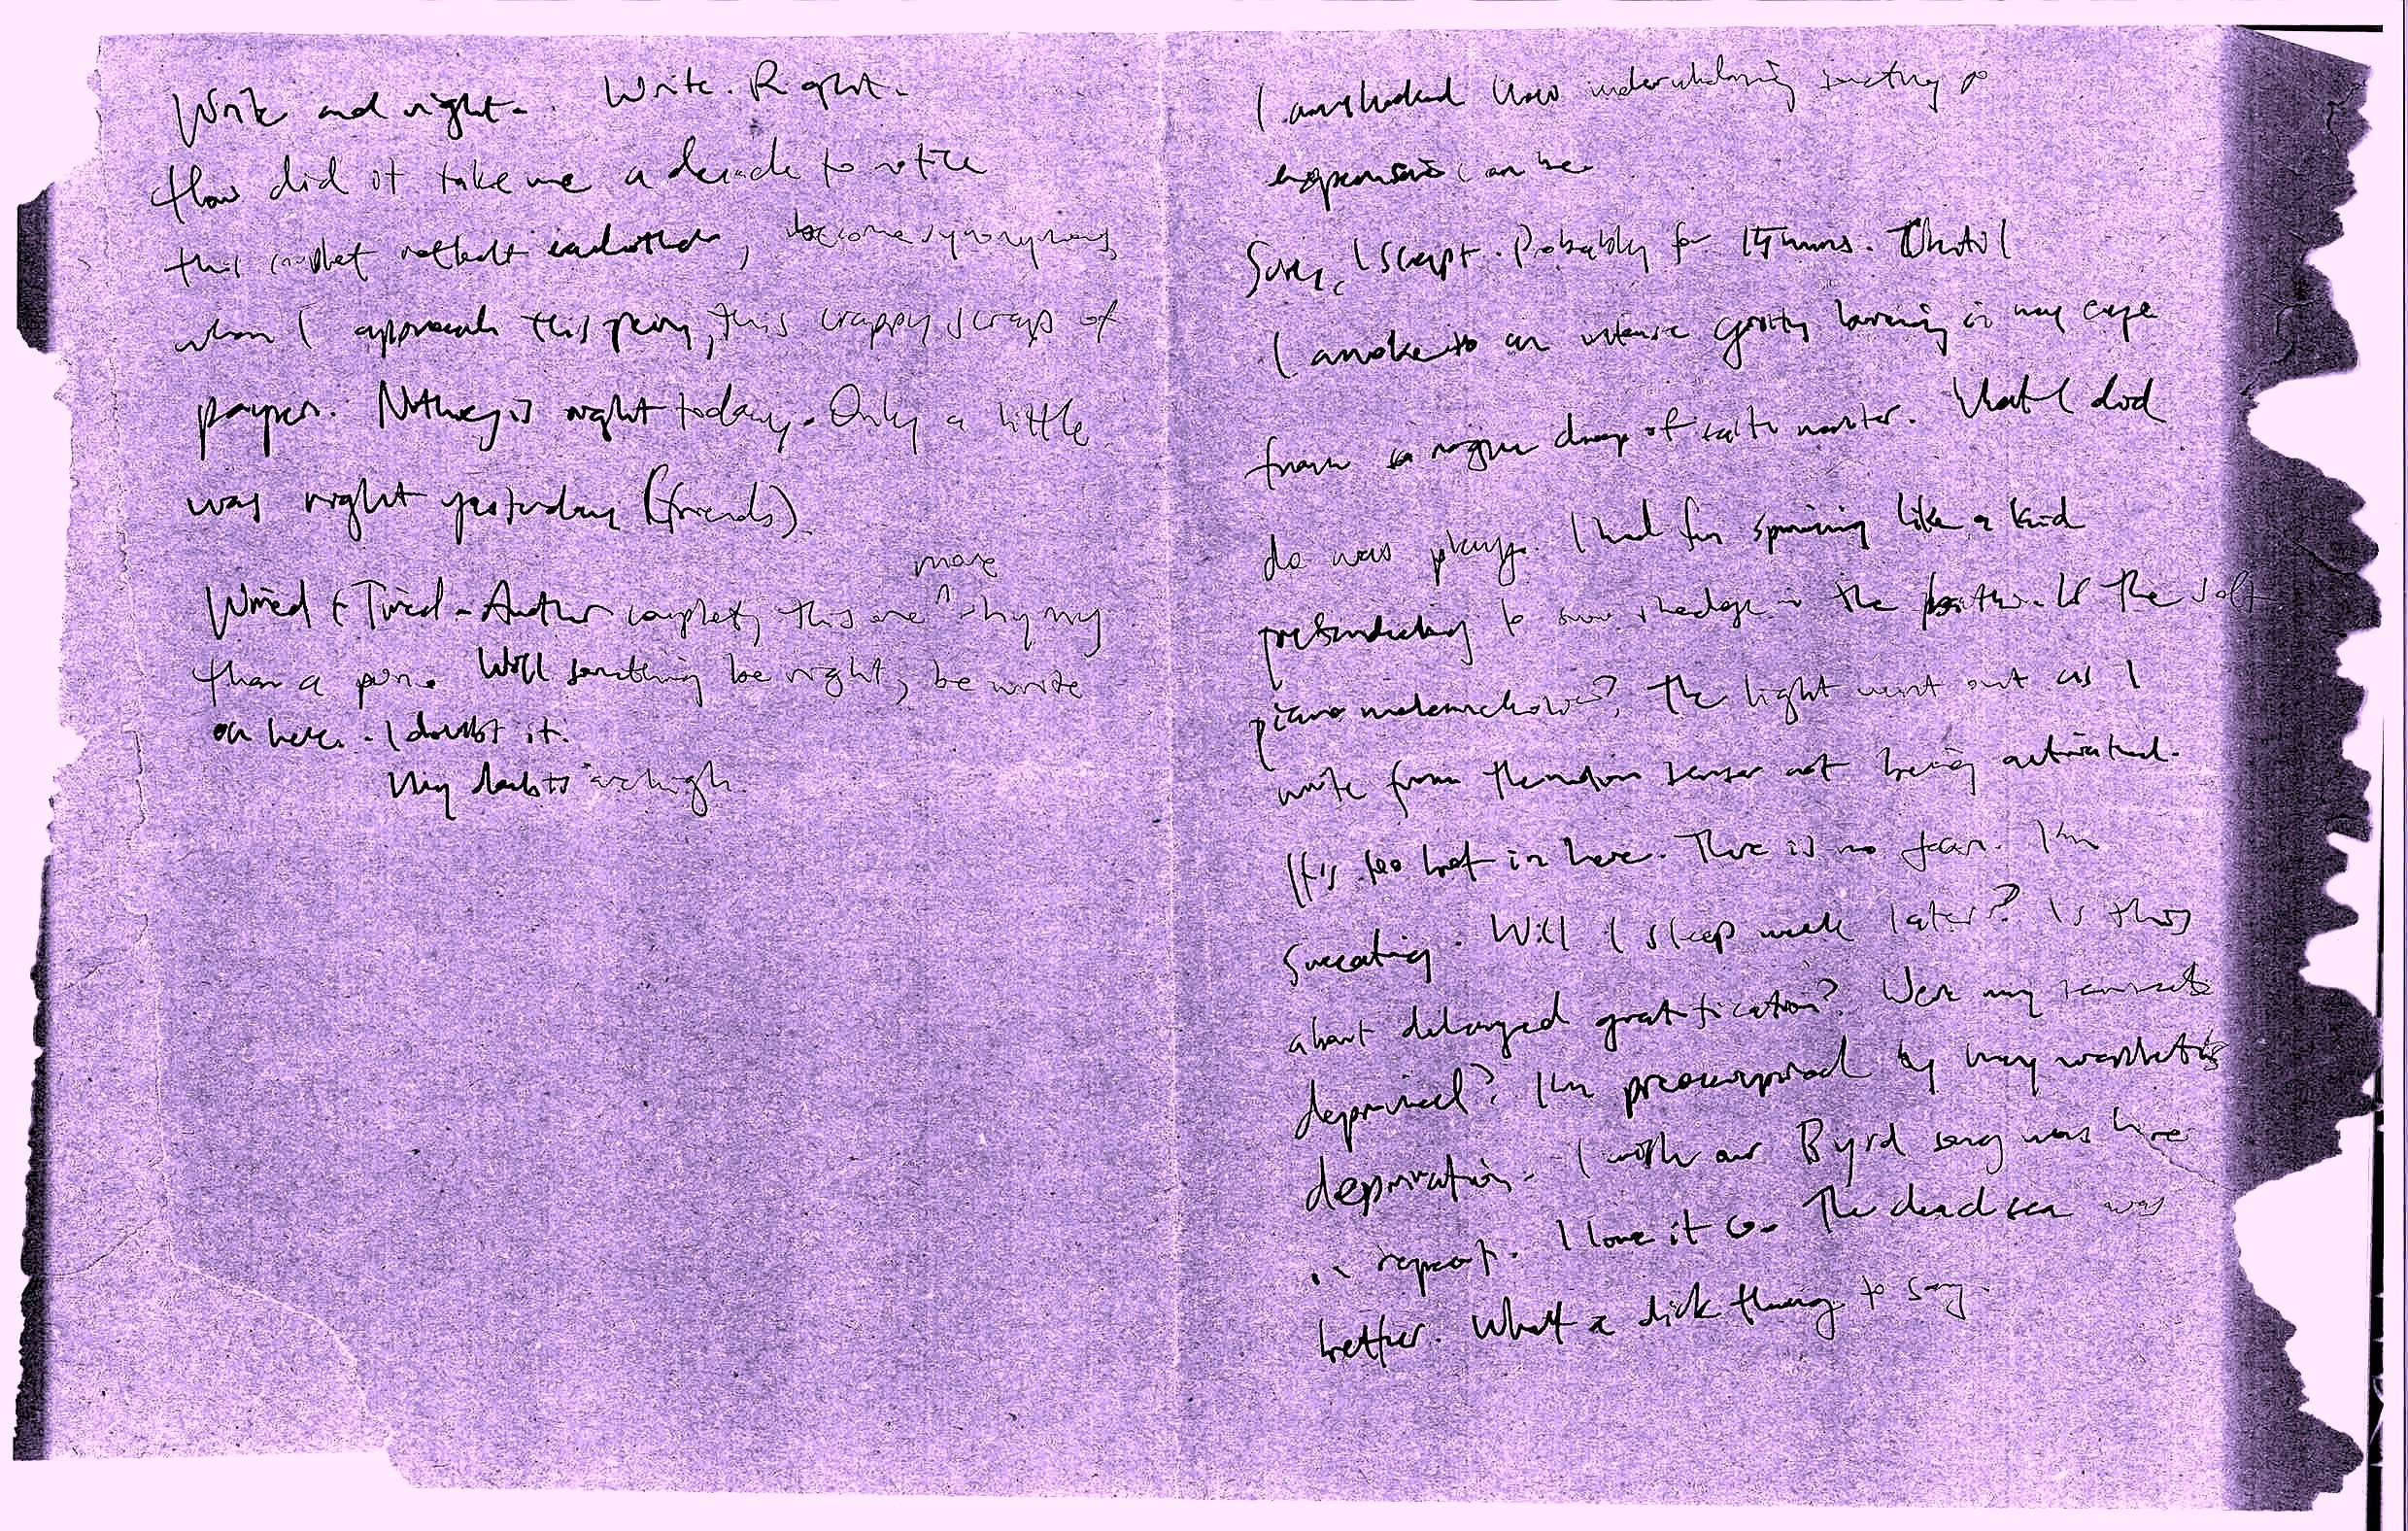 Write and right. Write. Right.
How did it take me a decade to notice
this couplet reflect eachother, become synonymous
when I approach this thing, this crappy scrap of
paper. Nothing is right today. Only a little
was right yesterday (friends).
more
Wired & Tired - Another couplet, this one ^ rhymy
than a pun. Will something be right, be write
on here. I doubt it.
My doubts are high.
I am shocked how underwhelming something so
expensive can be.
Sure, I slept. Probably for 15 mins. Until I
awoke to an intense burning in my eye
from a rogue drop of salt water. What I did
do was play. I had fun spinning like a kid
pretending to in the bottle. Is the salt
piano melancholic? The light went out as I
write from the motion sensor not being activated.
It's too hot in here. There is no fear. I'm
sweating. Will I sleep well later? Is this
about delayed gratification? Were my senses
deprived? I'm preoccupied by my
deprivation. I wish our Byrd song was here
on repeat. I love it so. The dead sea was
better. What a dick thing to say.